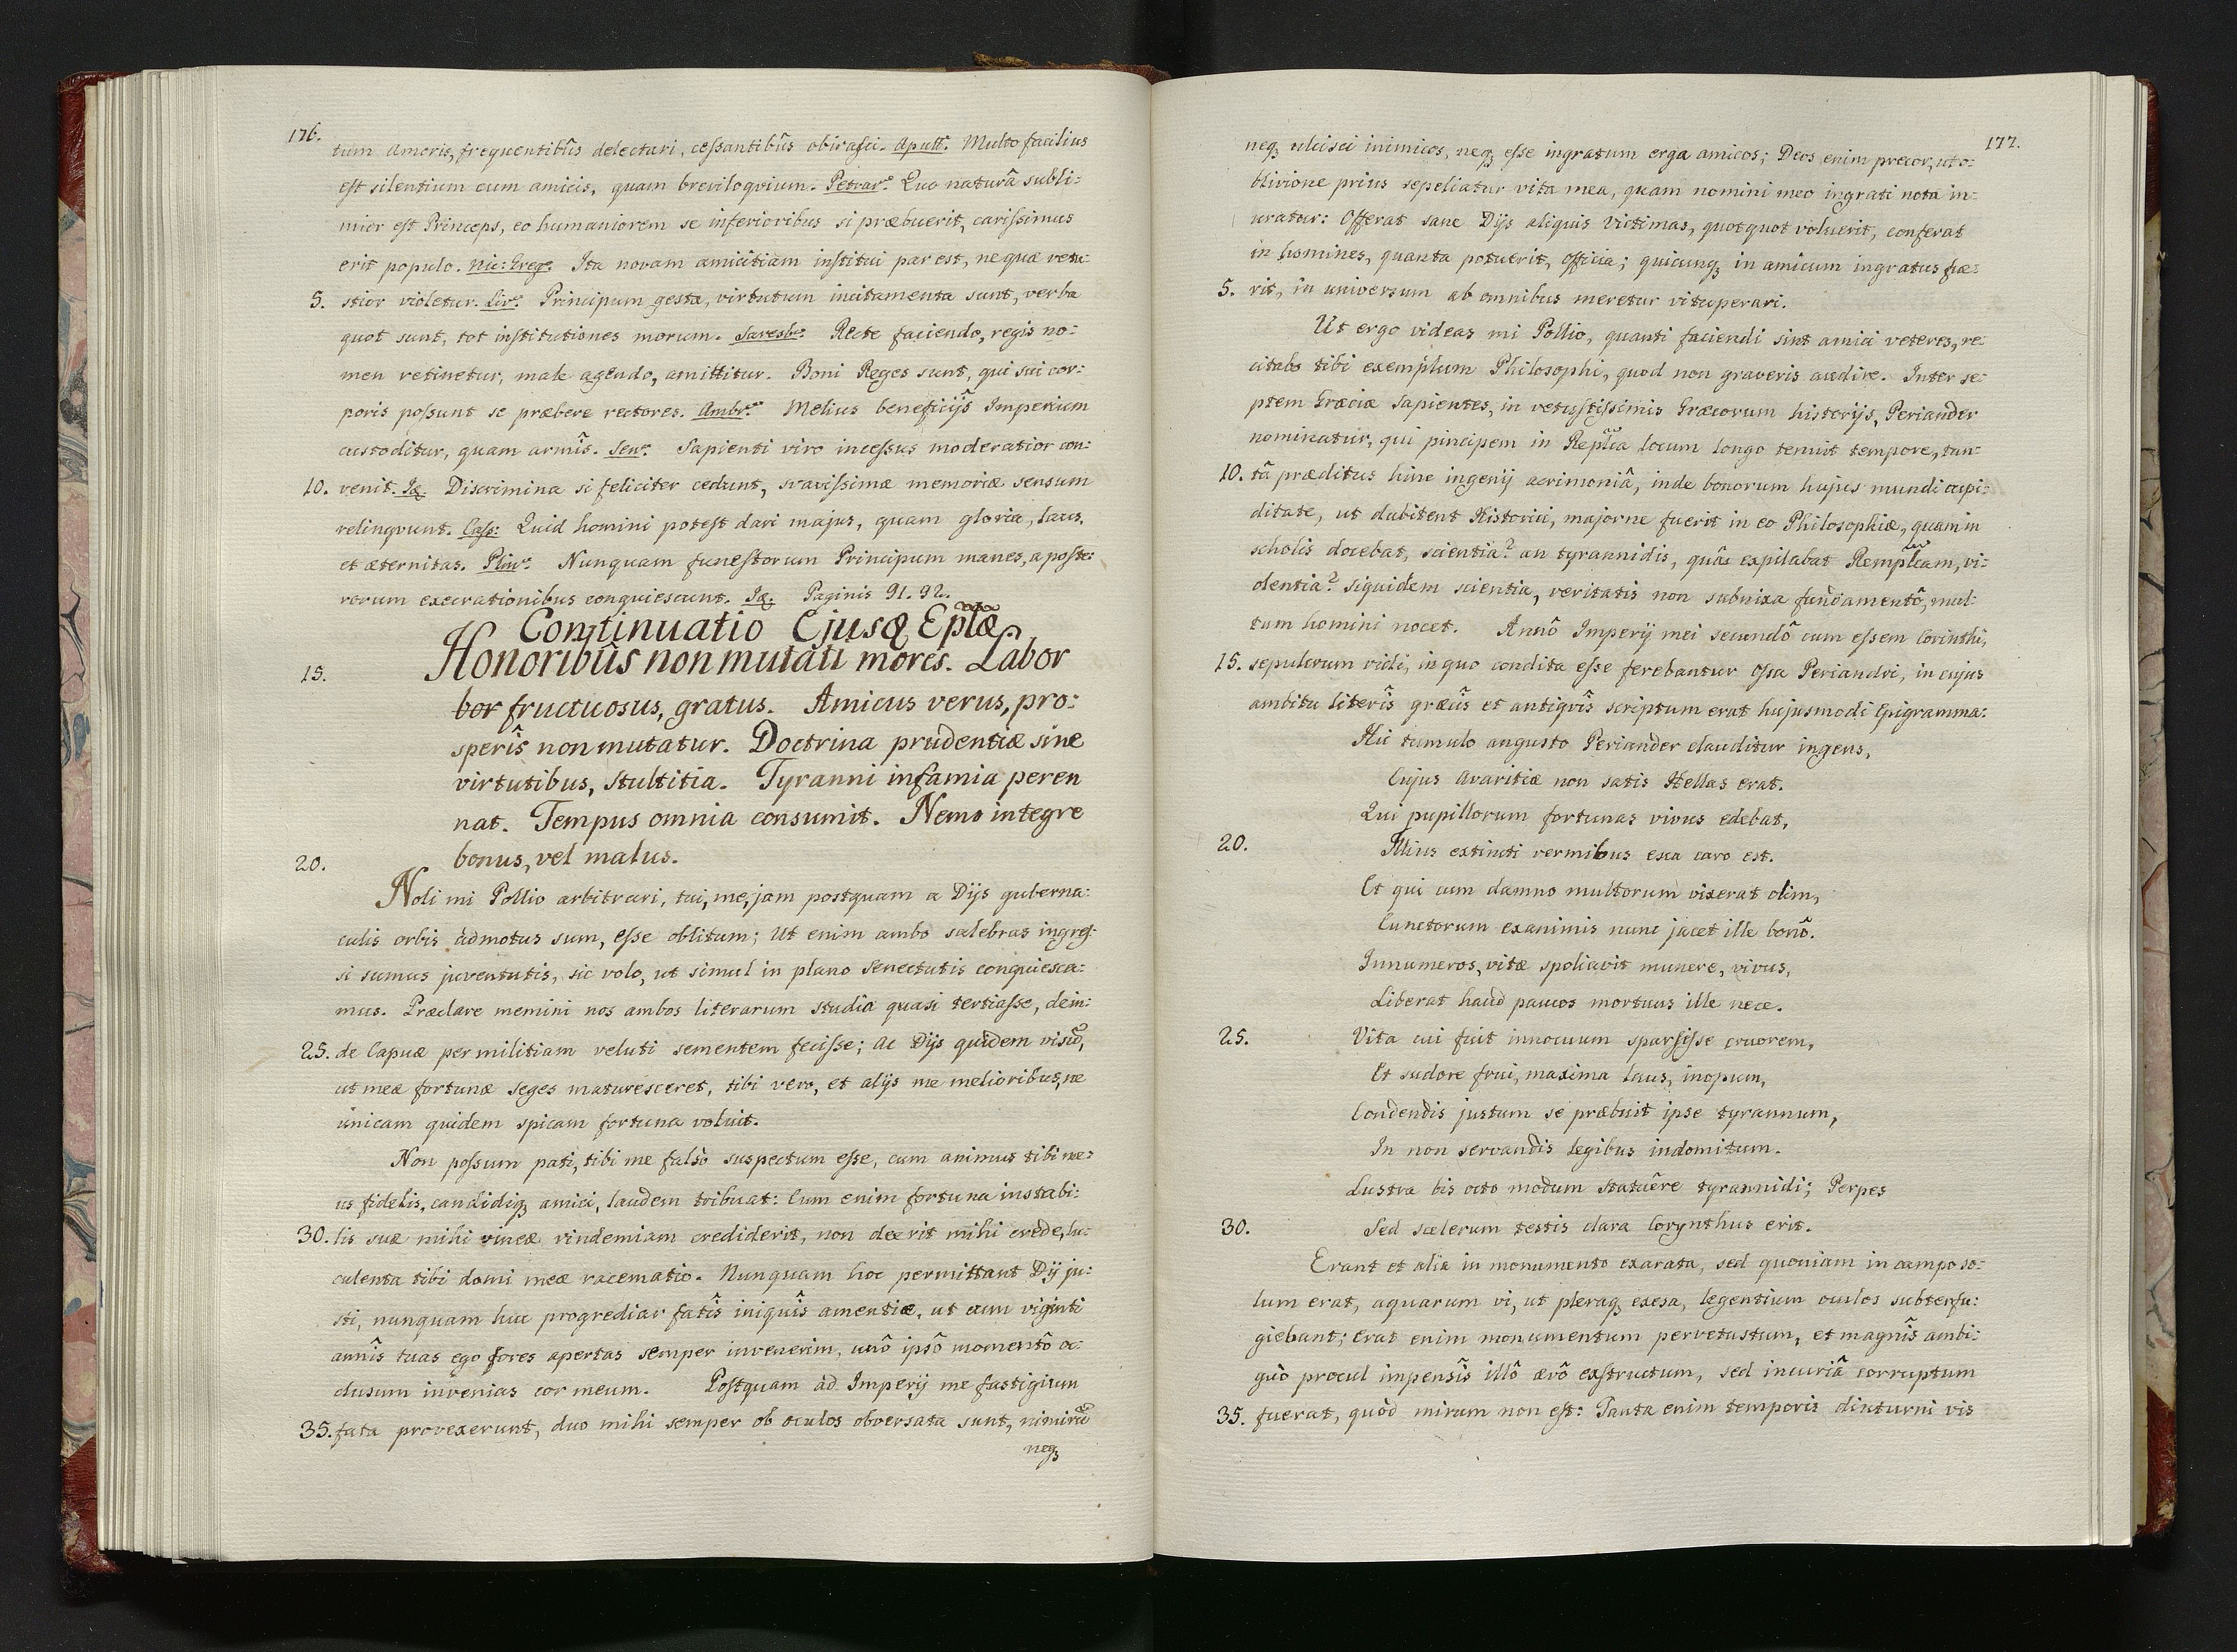 176.
tum Amoris, frequentibûs delectari, ceſsantibûs obiraſci. Apull: Multo facilius
eſt silentium cum amicis, quam breviloqvium. Petrar: Quo naturâ subli:
mior eſt Princeps, eo humaniorem se inferioribus si præbuerit, cariſsimus
erit populo. Nic: Greg: Ita novam amicitiam inſtitui par est, ne quæ vetu:
5. stior violetur. Liv: Principum gesta, virtutum incitamenta sunt, verba
quot sunt, tot inſtitutiones morum. Saresb: Recte faciendo, regis no:
men retinetur, male agendo, amittitur. Boni Reges sunt, qui sui cor:
poris poſsunt se præbere rectores. Ambr: Melius beneficijs̑ Imperium
custoditur, quam armîs. Sen: Sapienti viro inceſsus moderatior con:
10. venit. Iq. Discrimina si feliciter cedunt, svaviſsimæ memoriæ sensum
relinqvunt. Caſs: Quid homini poteſt dari majus, quam gloria, laus,
et æternitas. Plin: Nunquam funeſtorum Principum manes, a poſte:
rorum execrationibus conquiescunt. Iq. Paginis 91. 92.
Continuatio Ejusq Eplæ.
15. Honoribûs non mutati mores. Labor
bor fructuosus, gratus. Amicus verus, pro:
sperîs non mutatur. Doctrina prudentiæ sine
virtutibus, stultitia. Tyranni infamia peren
nat. Tempus omnia consumit. Nemo integre
20. bonus, vel malus.
Noli mi Pollio arbitrari, tui, me, jam postquam a Dijs guberna:
culis orbis admotus sum, eſse oblitum; Ut enim ambo salebras ingreſ:
si sumus juventutis, sic volo, ut simul in plano senectutis conquiesca:
mus. Præclare memini nos ambos literarum studia quasi tertiaſse, dein:
25. de Capuæ per militiam veluti sementem feciſse; Ac Dijs quidem visũ,
ut meæ fortunæ seges maturesceret, tibi vero, et alijs me melioribus, ne
unicam quidem spicam fortuna voluit.
Non poſsum pati, tibi me falsò suspectum eſse, cum animus tibi me:
us fidelis, candidiqꝫ amici, laudem tribuat: Cum enim fortuna instabi:
30. lis suæ mihi vineæ vindemiam crediderit, non deerit mihi crede, lu:
culenta tibi domi meæ racematio. Nunquam hoc permittant Dij ju:
sti, nunquam huc progrediar fatîs iniquîs amentiæ, ut cum viginti
annîs tuas ego fores apertas semper invenerim, unô ipsô momentô oc:
clusum invenias cor meum. Poſtquam ad Imperij me fastigium
35. fata provexerunt, duo mihi semper ob oculos obversata sunt, nimirũ
neqꝫ
177.
neqꝫ ulcisci inimicos, neqꝫ eſse ingratum erga amicos; Deos enim precor, ut o:
blivione prius sepeliatur vita mea, quam nomini meo ingrati nota in:
uratur: Offerat sane Dijs aliquis Victimas, quotquot voluerit, conferat
in homines, quanta potuerit, Officia; quicunqꝫ in amicum ingratus fue:
5. rit, in universum ab omnibus meretur vituperari.
Ut ergo videas mi Pollio, quanti faciendi sint amici veteres, re:
citabo tibi exemplum Philosophi, quod non graveris audire. Inter se:
ptem Græciæ Sapientes, in vetuſtiſsimis Græcorum historijs, Periander
nominatur, qui pincipem in Replica locum longo tenuit tempore, tan:
10. tâ præditus hinc ingenij acrimoniâ, inde bonorum hujus mundi cupi:
ditate, ut dubitent Historici, majorne fuerit in eo Philosophiæ, quam in
scholis docebat, scientia? an tyrannidis, quâs expilabat Remplcam, vi:
olentia? siquidem scientia, veritatis non subnixa fundamentô, mul:
tum homini nocet. Annô Imperij mei secundô cum eſsem Corinthi,
15. sepulcrum vidi, in quo condita eſse ferebantur Oſsa Periandri, in cujus
ambitu literîs græcîs et antiqvîs scriptum erat hujusmodi Epigramma:
Hic tumulo angusto Periander clauditur ingens,
Cujus Avaritiæ non satis Hellas erat.
Qui pupillorum fortunas vivus edebat,
20. Illius extincti vermibus esca caro est.
Et qui cum damno multorum vixerat olim,
Cunctorum exanimis nunc jacet ille bonô.
Innumeros, vitæ spoliavit munere, vivus,
Liberat haud paucos mortuus ille nece.
25. Vita cui fuit innocuum sparſiſse cruorem,
Et sudore frui, maxima laus, inopum,
Condendis justum se præbuit ipse tyrannum,
In non servandis legibus indomitum.
Lustra bis octo modum statuêre tyrannidi; Perpes
30. Sed scelerum testis clara Corynthus erit.
Erant et alia in monumento exarata, sed quoniam in campo so:
lum erat, aquarum vi, ut pleraqꝫ exesa, legentium oculos subterfu:
giebant; Erat enim monumentum pervetustum, et magnîs ambi:
guò procul impensîs illô ævô exſtructum, sed incuriâ corruptum
35. fuerat, quòd mirum non eſt: Tanta enim temporis diuturni vis